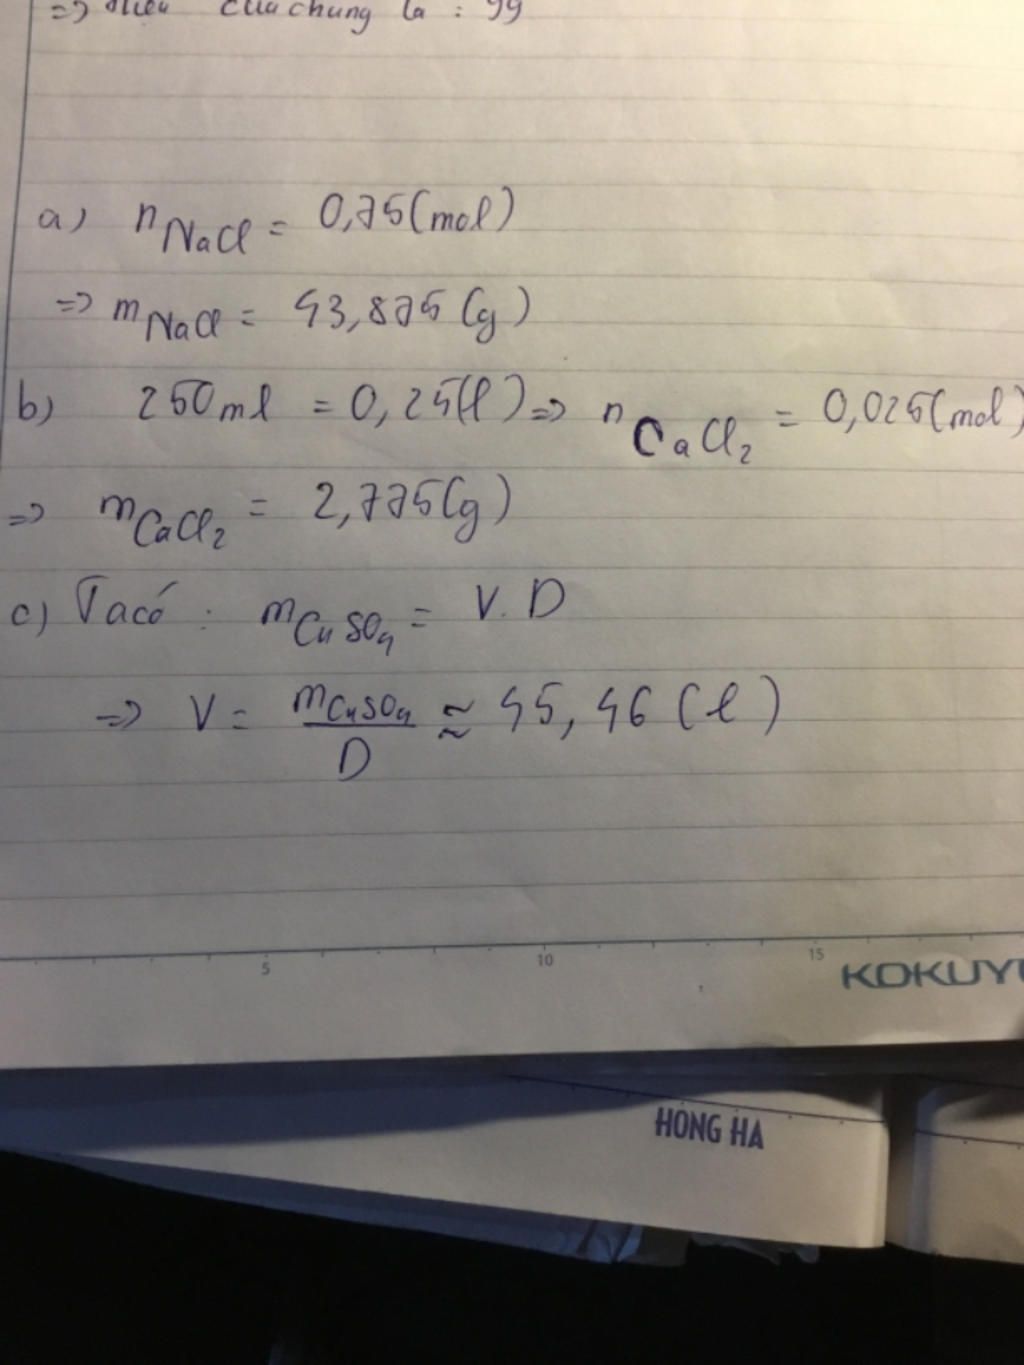 của chúng là : 99
a) nNaCl = 0,75(mol)
=> mNaCl = 43,875(g)
b) 250ml = 0,25(l) => nCaCl2 = 0,025(mol)
=> mCaCl2 = 2,775(g)
c) Ta có : mCuSO4 = V.D
=> V = mCuSO4/D ≈ 45,46 (l)
5 10 15
KOKUYO
HONG HA